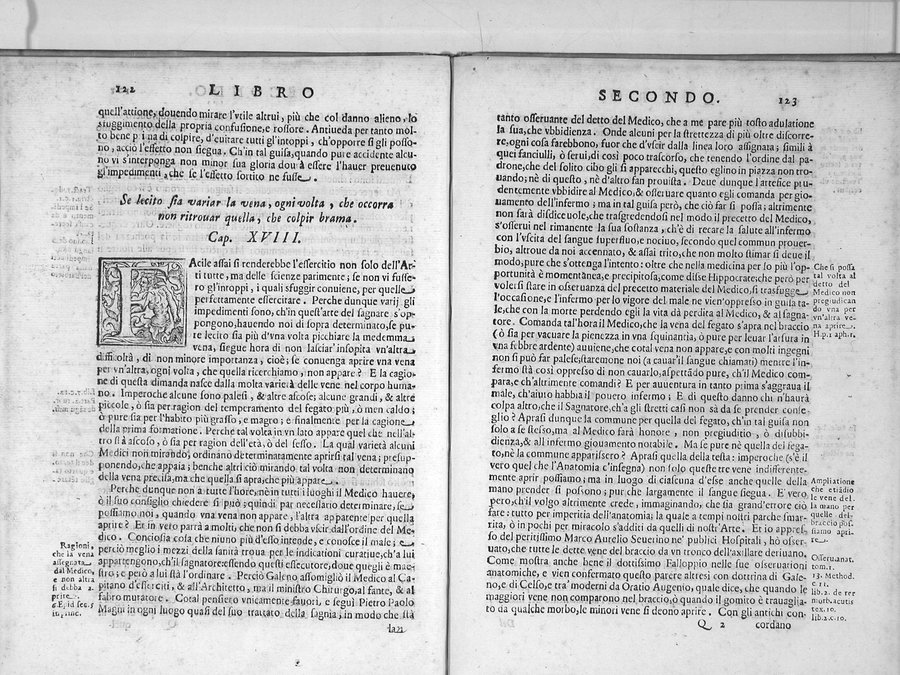 122 LIBRO
quell'attione, douendo mirare l'vtile altrui, più che col danno alieno, lo
sfuggimento della propria confusione, e rossore. Antiueda per tanto mol-
to bene prima di colpire, d'euitare tutti gl'intoppi, ch'opporre si gli posso-
no, acciò l'effetto non siegua. Ch'in tal guisa, quando pure accidente alcu-
no vi s'interponga non minor sua gloria dourà essere l'hauer preuenuto
gl'impedimenti, che se l'effetto sortito ne fusse.
Se lecito sia variar la vena, ogni volta, che occorra
non ritrouar quella, che colpir brama.
Cap. XVIII.
FAcile assai si renderebbe l'essercitio non solo dell'Ar-
ti tutte, ma delle scienze parimente, se non vi fusse-
ro gl'intoppi, i quali sfuggir conuiene, per quelle
perfettamente essercitare. Perche dunque varij gli
impedimenti sono, ch'in quest'arte del sagnare s'op-
pongono, hauendo noi di sopra determinato, se pu-
re lecito sia più d'vna volta picchiare la medemma
vena, siegue hora di non lasciar'insopita vn'altra
difficoltà, di non minore importanza, cioè; se conuenga aprire vna vena
per vn'altra, ogni volta, che quella ricerchiamo, non appare? E la cagio-
ne di questa dimanda nasce dalla molta varietà delle vene nel corpo huma-
no. Imperoche alcune sono palesi, & altre ascose; alcune grandi, & altre
piccole, ò sia per ragion del temperamento del fegato più, ò men caldo;
ò pure sia per l'habito più grasso, e magro; e finalmente per la cagione
della prima formatione. Perche tal volta in vn lato appare quel che nell'al-
tro stà ascoso, ò sia per ragion dell'età, ò del sesso. La qual varietà alcuni
Medici non mirando, ordinano determinatamente aprirsi tal vena; presup-
ponendo, che appaia; benche altri ciò mirando tal volta non determinano
della vena precisa, ma che quella si apra, che più appare.
Perche dunque non à tutte l'hore, nè in tutti i luoghi il Medico hauere,
ò il suo consiglio chiedere si può; quindi par necessario determinare, se
possiamo noi, quando vna vena non appare, l'altra apparente per quella
aprire? Et in vero parrà a molti, che non si debba vscir dall'ordine del Me-
dico. Conciosia cosa che niuno più d'esso intende, e conosce il male; e
perciò meglio i mezzi della sanità troua per le indicationi curatiue, ch'a lui
appartengono, ch'il sagnatore: essendo questi essecutore, doue quegli è mae-
stro; e però a lui stà l'ordinare. Perciò Galeno assomigliò il Medico al Ca-
pitano d'esserciti, & all'Architetto, ma il ministro Chirurgo, al fante, & al
fabro muratore. Cotal pensiero vnicamente fauorì, e seguì Pietro Paolo
Magni in ogni luogo quasi del suo trattato della sagnia; in modo che stà
tan-
Ragioni,
che la vena
assegnata
dal Medico,
e non altra
si debba a-
prire.
SECONDO. 123
tanto osseruante del detto del Medico, che a me pare più tosto adulatione
la sua, che vbbidienza. Onde alcuni per la strettezza di più oltre discorre-
re, ogni cosa farebbono, fuor che d'vscir dalla linea loro assignata; simili à
quei fanciulli, ò serui, di così poco trascorso, che tenendo l'ordine dal pa-
drone, che del solito cibo gli si apparecchi, questo eglino in piazza non tro-
uando, nè di questo, nè d'altro fan prouista. Deue dunque l'artefice pru-
dentemente vbbidire al Medico, & osseruare quanto egli comanda per gio-
uamento dell'infermo; ma in tal guisa però, che ciò far si possa; altrimente
non sarà disdiceuole, che trasgredendosi nel modo il precetto del Medico,
s'osserui nel rimanente la sua sostanza, ch'è di recare la salute all'infermo
con l'vscita del sangue superfluo, e nociuo, secondo quel commun prouer-
bio, altroue da noi accennato, & assai trito, che non molto stimar si deue il
modo, pure che s'ottenga l'intento: oltre che nella medicina per lo più l'op-
portunità è momentanea, e precipitosa, come disse Hippocrate; che però per
voler si stare in osseruanza del precetto materiale del Medico, si trasfugge
l'occasione, e l'infermo per lo vigore del male ne vien'oppresso in guisa ta-
le, che con la morte perdendo egli la vità dà perdita al Medico, & al sagna-
tore. Comanda tal'hora il Medico, che la vena del fegato s'apra nel braccio
(ò sia per vacuare la pienezza in vna squinantia, ò pure per leuar l'arsura in
vna febbre ardente) auuiene, che cotal vena non appare, e con molti ingegni
non si può far palese, staremone noi (a cauar'il sangue chiamati) mentre l'in-
fermo stà così oppresso di non cauarlo, aspettando pure, ch'il Medico com-
para, e ch'altrimente comandi? E per auuentura in tanto prima s'aggraua il
male, ch'aiuto habbia il pouero infermo; E di questo danno chi n'haurà
colpa altro, che il Sagnatore, ch'a gli stretti casi non sà da se prender conse-
glio? Aprasi dunque la commune per quella del fegato, ch'in tal guisa non
solo a se stesso, ma al Medico farà honore, non pregiuditio, ò disubbi-
dienza, & all'infermo giouamento notabile. Ma se pure nè quella del fega-
to, nè la commune apparissero? Aprasi quella della testa: imperoche (s'è il
vero quel che l'Anatomia c'insegna) non solo queste tre vene indifferente-
mente aprir possiamo; ma in luogo di ciascuna d'esse anche quelle della
mano prender si possono; pur che largamente il sangue siegua. E vero
però, ch'il volgo altrimente crede, immaginando, che sia grand'errore ciò
fare: tutto per imperitia dell'anatomia; la quale a tempi nostri parche smar-
rita, ò in pochi per miracolo s'additi da quelli di nostr'Arte. Et io appres-
so del peritissimo Marco Aurelio Seuerino ne' publici Hospitali, hò osser-
uato, che tutte le dette vene del braccio da vn tronco dell'axillare deriuano.
Come mostra anche bene il dottissimo Falloppio nelle sue osseruationi
anatomiche, e vien confermato questo parere altresì con dottrina di Gale-
no, e di Celso, e tra' moderni da Oratio Augenio, quale dice, che quando le
maggiori vene non comparono nel braccio, ò quando il gomito è trauaglia-
to da qualche morbo, le minori vene si deono aprire. Con gli antichi con-
Q 2 cordano
Che si possa
tal volta al
detto del
Medico non
pregiudican
do vna per
vn'altra ve-
na aprire.
H.p.1 aph.1.
Ampliatione
che etiãdio
le vene del-
la mano per
quelle del
braccio pos-
siamo apri-
re.
Osseruanat.
tom.1.
13. Method.
c. 11.
lib.2. de rer
morb.acutis
tex.10.
lib.2.c.10.